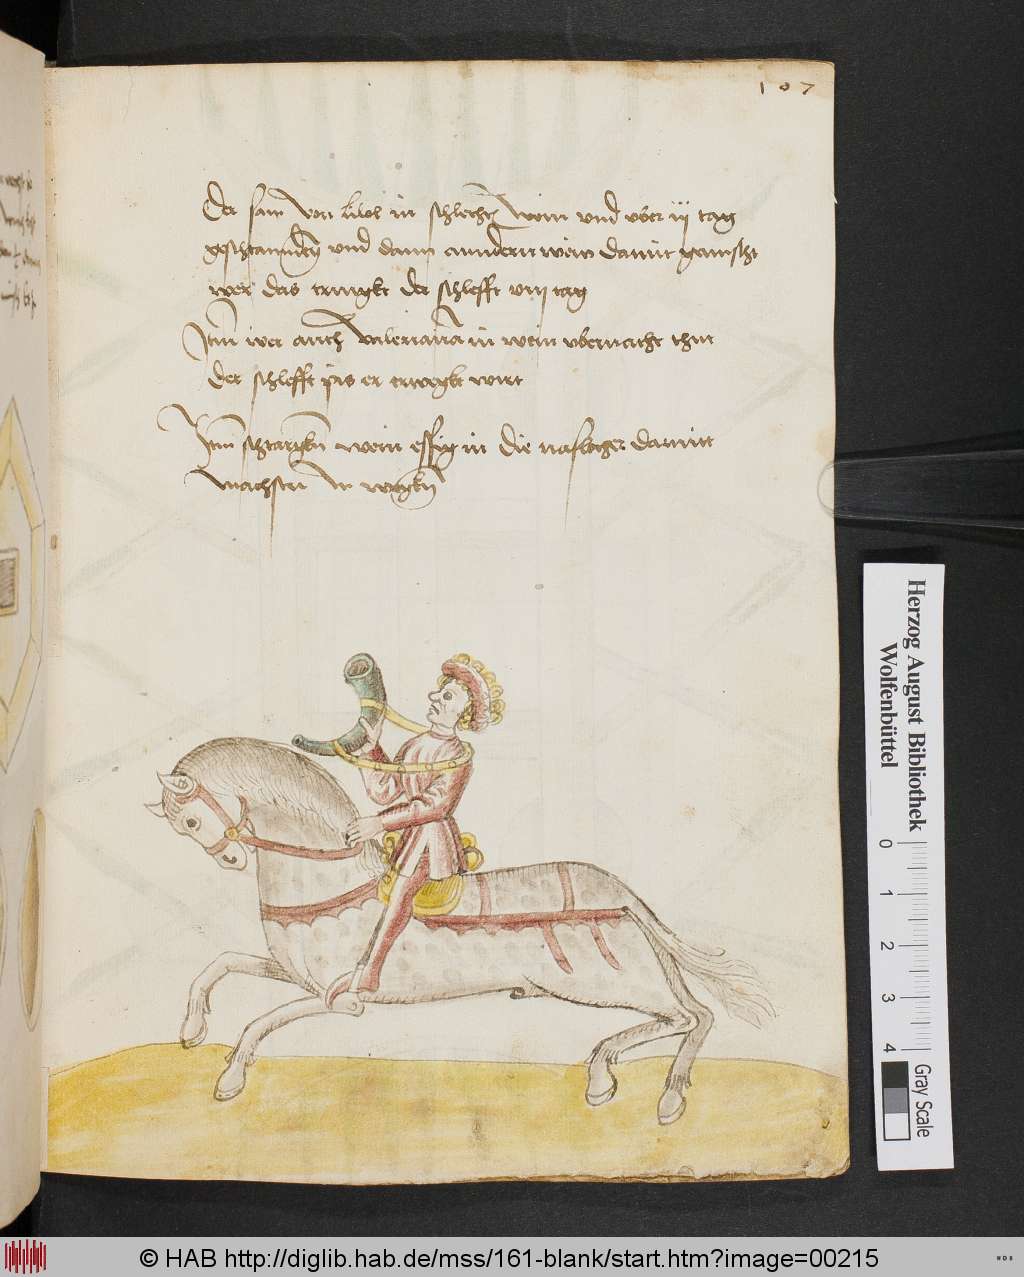 107
Der sam von lilol in schlechtē wein und vber iij tag
geschtannden und dann anndern wein damit gemischt
wer das tringkt der schlefft viij tag
Item wer auch valeriana in wein vbernacht thut
der schlefft pis er erwegkt wirt
Item schtarckn wein essig in die nasslocher damitt
machstu in wegkn
Herzog August Bibliothek
Wolfenbüttel
0 1 2 3 4
Gray Scale
© HAB http://diglib.hab.de/mss/161-blank/start.htm?image=00215